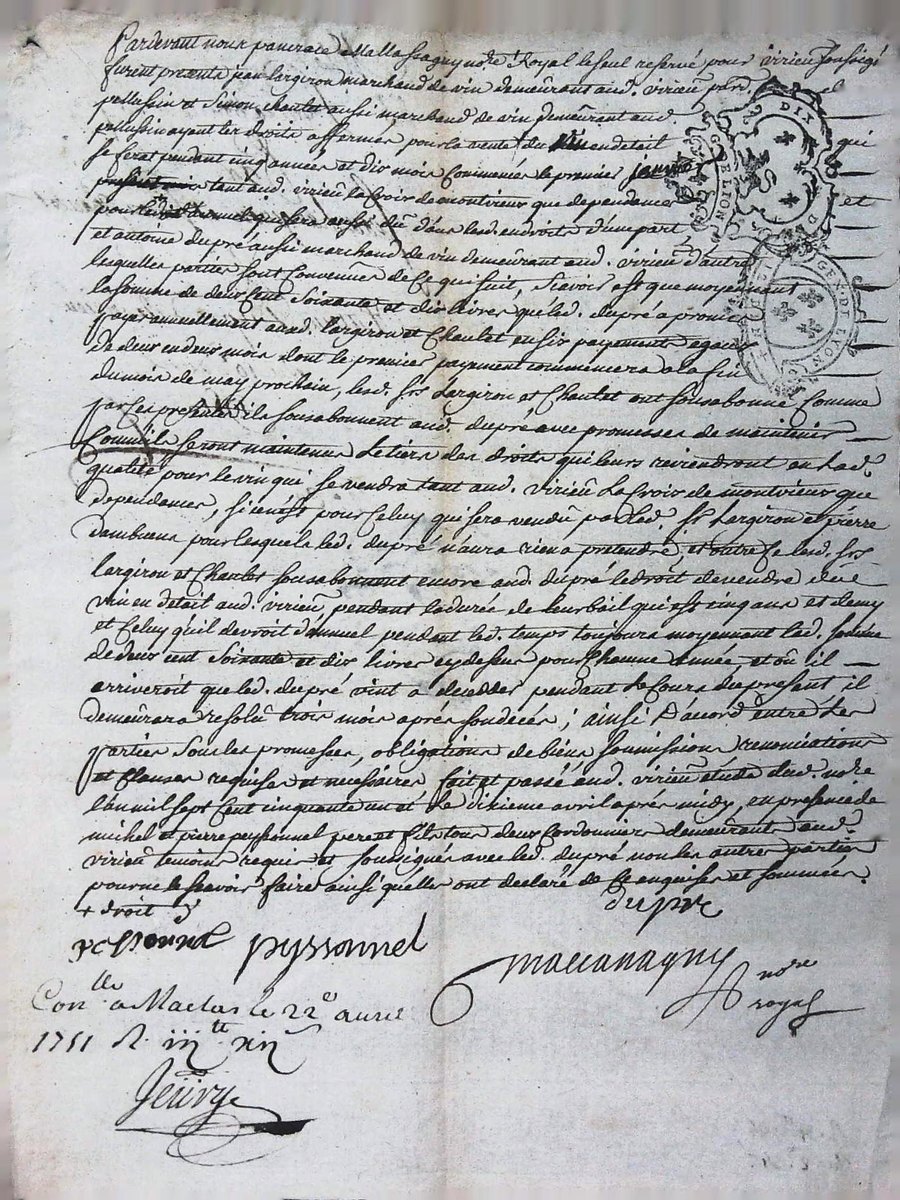 Pardevant nous pancrace notre Royal le seul reservé pour virieu soussigné
furent presents jean largiron marchand de vin demeurant aud. virieu par. de
pellussin et Simon chanlet aussi marchand de vin demeurant aud
pellussin ayant les droits affermés pour la vente du vin en détail qui
se ferat pendant cinq années et dix mois Commencés le premier janvier
tant aud. virieu la Croix de montvieux que dependances et
pour led. annuel qui sera aussi dû dans led. endroits d'une part
et antoine dupré aussi marchand de vin demeurant aud. virieu d'autre
lesquelles parties sont Convenues de Ce qui suit, scavoir est que moyennant
la somme de deux Cent Soixante et dix livres que led. dupré a promis
payer annuellement aud. largiron et Chanlet en six payements egaux
de deux en deux mois dont le premier payement commencera a la fin
du mois de may prochain, led. srs Largiron et Chanlet ont sousabonné Comme
par Ces presentes ils sousabonnent aud. dupré avec promesses de maintenir
Comm'ils seront maintenus Le tiers des droits qui leurs reviendront en lad.
qualité pour le vin qui se vendra tant aud. virieu La Croix de montvieux que
dependances, si ce n'est pour Celuy qui sera vendû par led. sr Largiron et pierre
dambuent pour lesquels led. dupré n'aura rien a pretendre, et outre Ce led. srs
largiron et Chanlet sousabonnent encore aud. dupré le droit de vendre de le
vin en détail aud. virieu, pendant la durée de leur bail qui est cinq ans et demy
et Celuy qu'il devroit d'annuel pendant led. temps toujours moyennant lad. somme
de deux cent Soixante et dix livres cy dessus pour Chacune année, et où il
arriveroit que led. dupré vint a deceder pendant le Cours du present il
demeurera resolû trois mois aprés son decés; ainsi d'accord entre les
parties sous les promesses, obligations de biens soumissions renonciations
et Clauses requises et necessaires fait et passé aud. virieu étude dud. notre
l'an mil sept Cent cinquante un et Le dixieme avril aprés midy, en presence de
michel et pierre peyssonnel pere et fils tous deux Cordonniers demeurants aud.
virieu temoins requis et soussignés avec led. dupré non les autres parties
pour ne le scavoir faire ainsi qu'elles ont declaré de Ce enquises et sommées.
+ droit dupré
pessonnel pyssonnel
notre
royal
Conlle a Maclas le 22e avril
1751 R.
DIX
GEN DE LYON